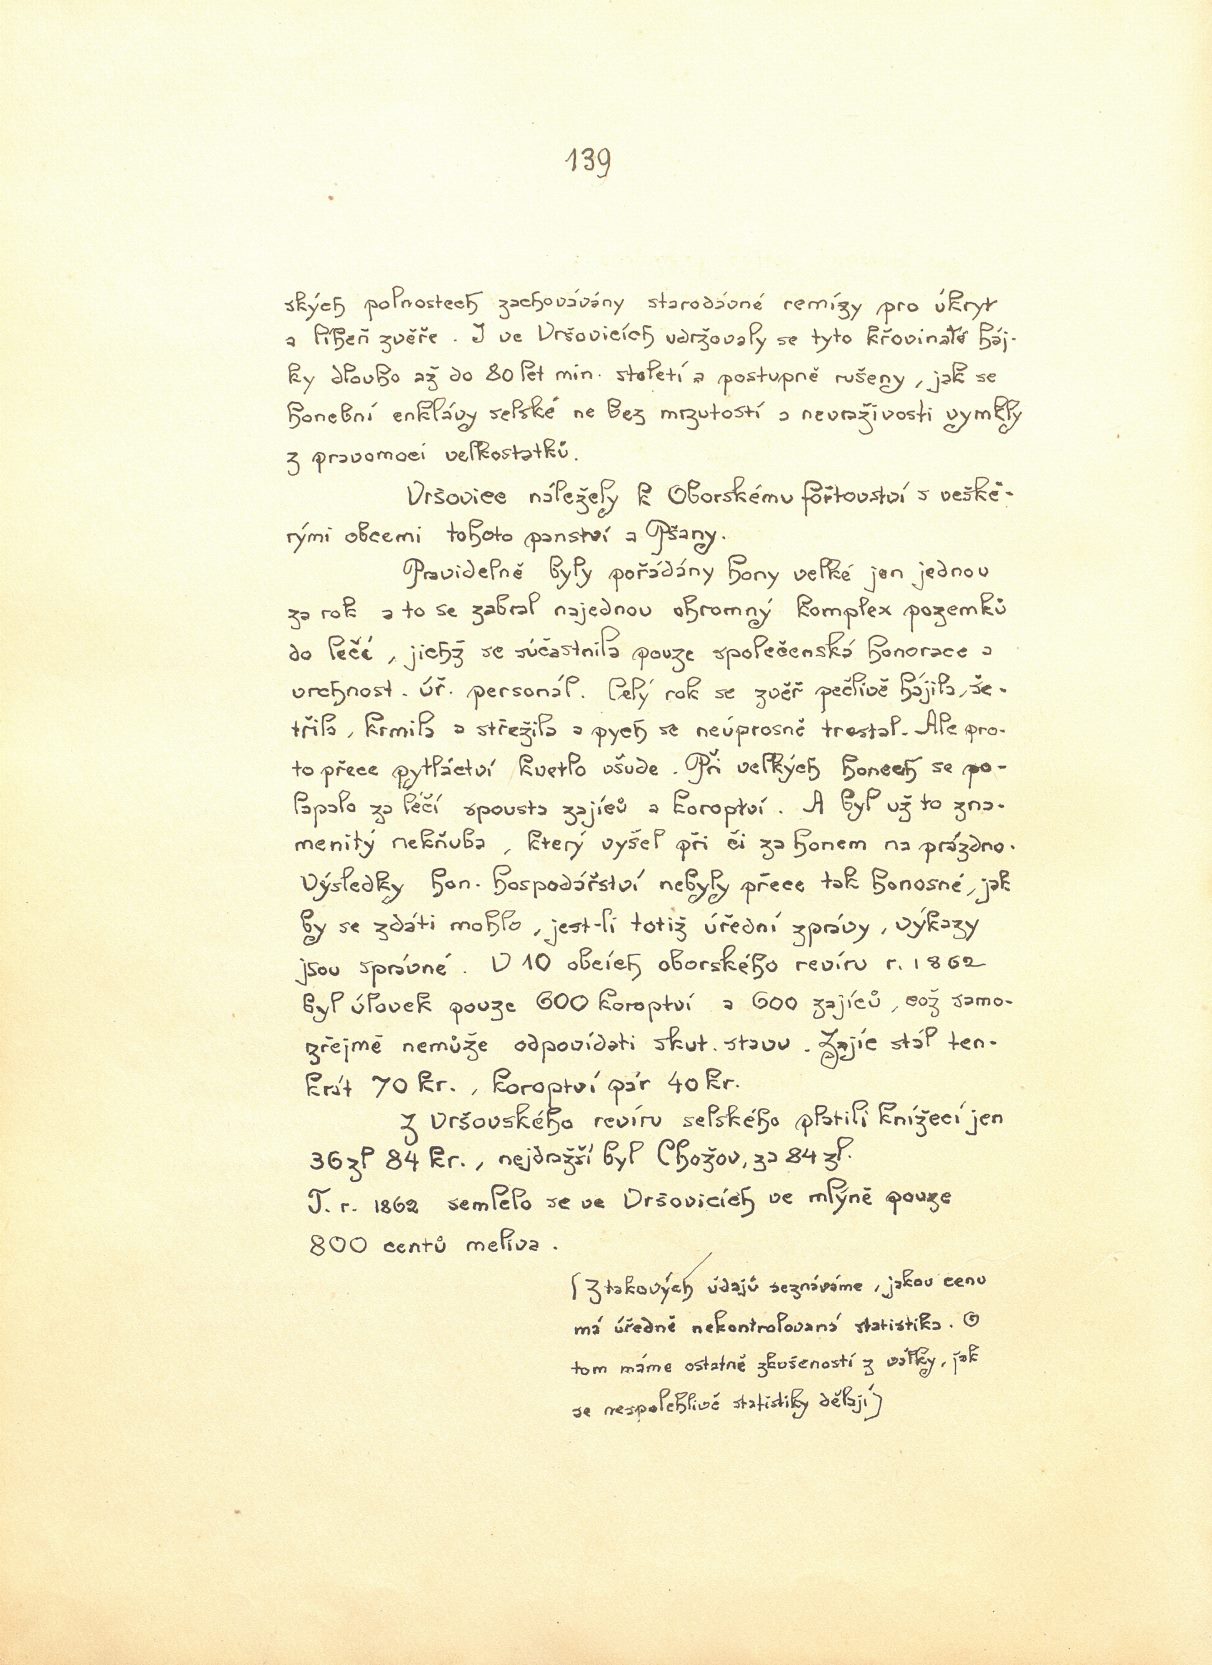 139
ských polnostech zachovávány starodávné remízy pro úkryt
a líheň zvěře. I ve Vršovicích udržovaly se tyto křovinaté háj-
ky dlouho až do 80 let min. století a postupně rušeny, jak se
honební enklávy selské ne bez mrzutostí a nevraživosti vymkly
z pravomoci velkostatků.
Vršovice náležely k Oborskému fořtovství s veške-
rými obcemi tohoto panství a Pšany.
Pravidelně byly pořádány hony velké jen jednou
za rok a to se zabral najednou ohromný komplex pozemků
do leče, jichž se súčastnila pouze společenská honorace a
vrchnost. úř. personál. Celý rok se zvěř pečlivě hájila, še-
třila, krmila a střežila a pych se neúprosně trestal. Ale pro-
to přece pytláctví kvetlo všude. Při velkých honech se po-
lapalo za léčí spousta zajíců a koroptví. A byl už to zna-
menitý nekňuba, který vyšel při či za honem na prázdno.
Výsledky hon. hospodářství nebyly přece tak honosné, jak
by se zdáti mohlo, jest-li totiž úřední zprávy, výkazy
jsou správné. V 10 obcích oborského revíru r. 1862
byl úlovek pouze 600 koroptví a 600 zajíců, což samo-
zřejmě nemůže odpovídati skut. stavu. Zajíc stál ten-
krát 70 kr., koroptví pár 40 kr.
Z Vršovského revíru selského platili knížecí jen
36 zl 84 kr., nejdražší byl Chožov, za 84 zl.
T. r. 1862 semlelo se ve Vršovicích ve mlýně pouze
800 centů meliva.
(Z takových údajů seznáváme, jakou cenu
má úředně nekontrolovaná statistika. O
tom máme ostatně zkušeností z války, jak
se nespolehlivé statistiky dělají)